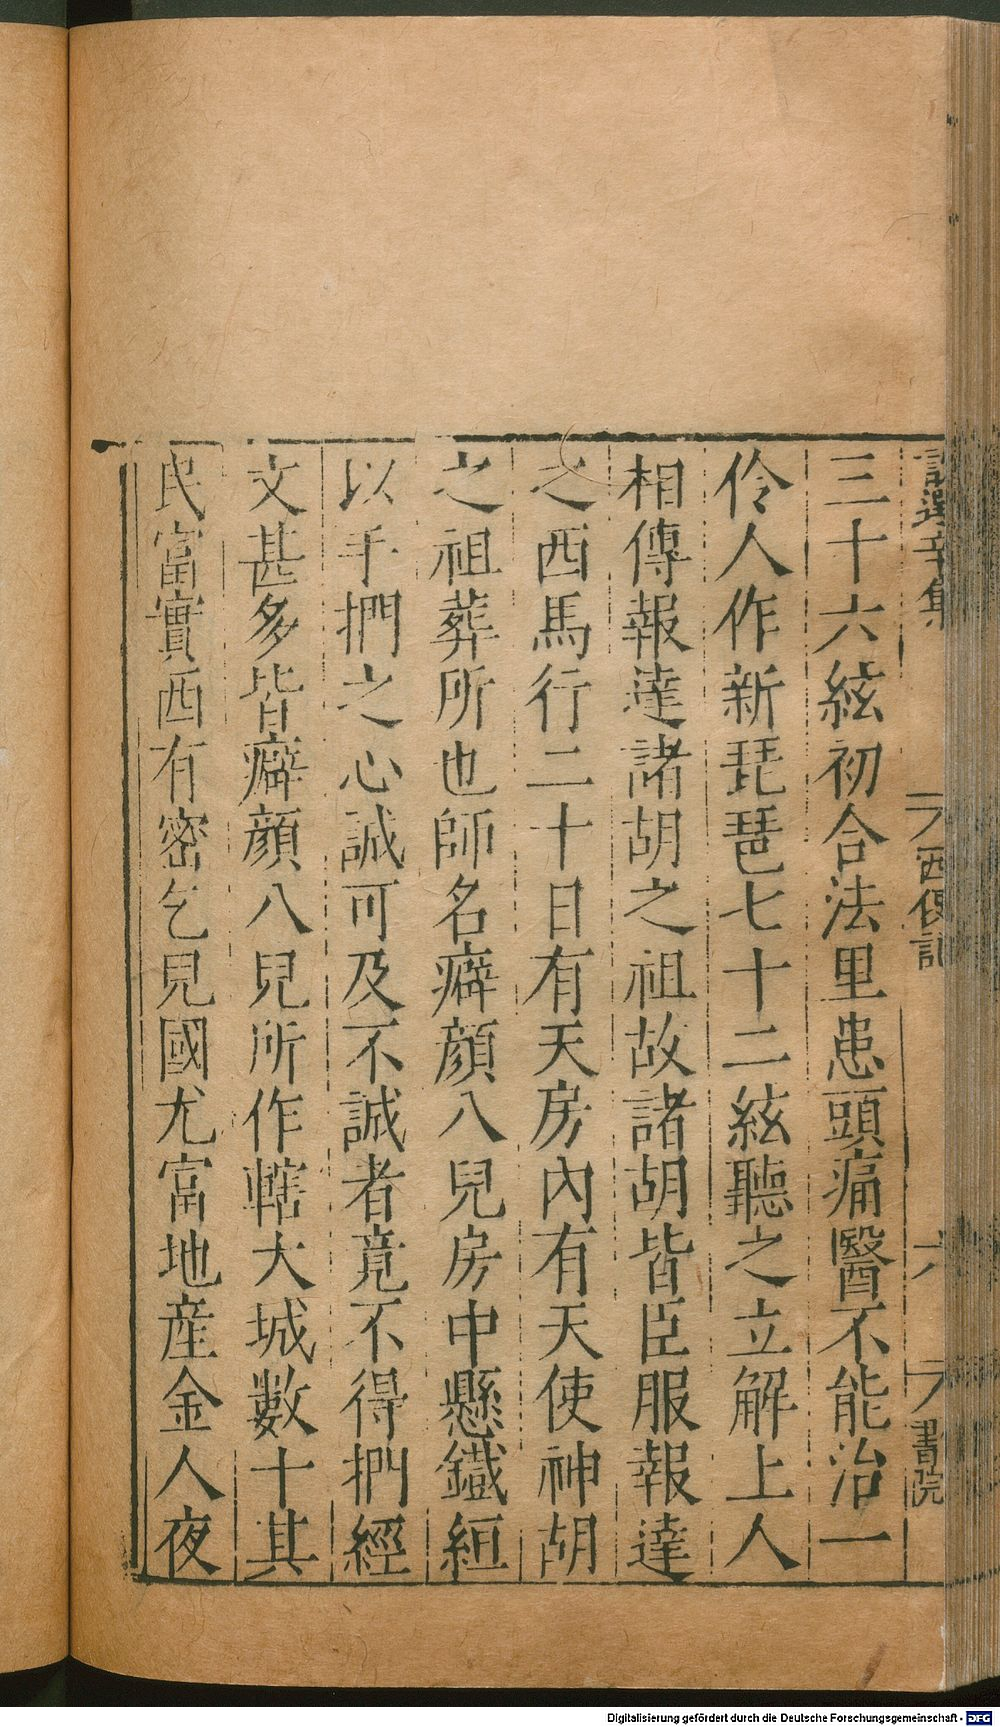 三十六絃初合法里患頭痛醫不能治一
伶人作新琵琶七十二絃聽之立解上人
相傳報達諸胡之祖故諸胡皆臣服報達
之西馬行二十日有天房內有天使神胡
之祖葬所也師名癖顔八兒房中懸鐡絙
以手捫之心誠可及不誠者竟不得捫經
文甚多皆癖顔八兒所作轄大城數十其
民富實西有密乞兒國尤富地産金人夜
西使記
六
書院
Digitalisierung gefördert durch die Deutsche Forschungsgemeinschaft - DFG